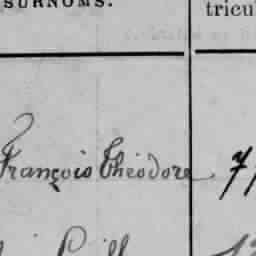 SURNOMS. tricu
François Théodore 77